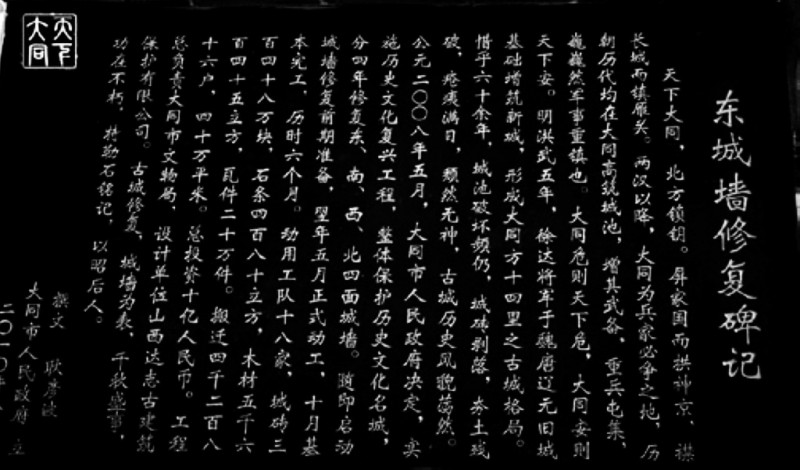 东城墙修复碑记
天下大同，北方锁钥。屏家国而拱神京，襟
长城而镇雁关。两汉以降，大同为兵家必争之地，历
朝历代均在大同高筑城池，增其武备，重兵屯集，
巍巍然军事重镇也。大同危则天下危，大同安则
天下安。明洪武五年，徐达将军于魏唐辽元旧城
基础增筑新城，形成大同方十四里之古城格局。
惜乎六十余年，城池破坏频仍，城砖剥落，夯土残
破，疮痍满目，颓然无神，古城历史风貌荡然。
公元二〇〇八年五月，大同市人民政府决定，实
施历史文化复兴工程，整体保护历史文化名城，
分四年修复东、南、西、北四面城墙。随即启动
城墙修复前期准备，翌年五月正式动工，十月基
本完工，历时六个月。动用工队十八家，城砖三
百四十八万块，石条四百八十立方，木材五千六
百四十五立方，瓦件二十万件。搬迁四千二百八
十六户，四十万平米。总投资十亿人民币。工程
总负责大同市文物局，设计单位山西达志古建筑
保护有限公司。古城修复，城墙为表，千秋盛事，
功在不朽，特勒石铭记，以昭后人。
撰文 耿彦波
大同市人民政府 立
二〇一〇年
天下大同